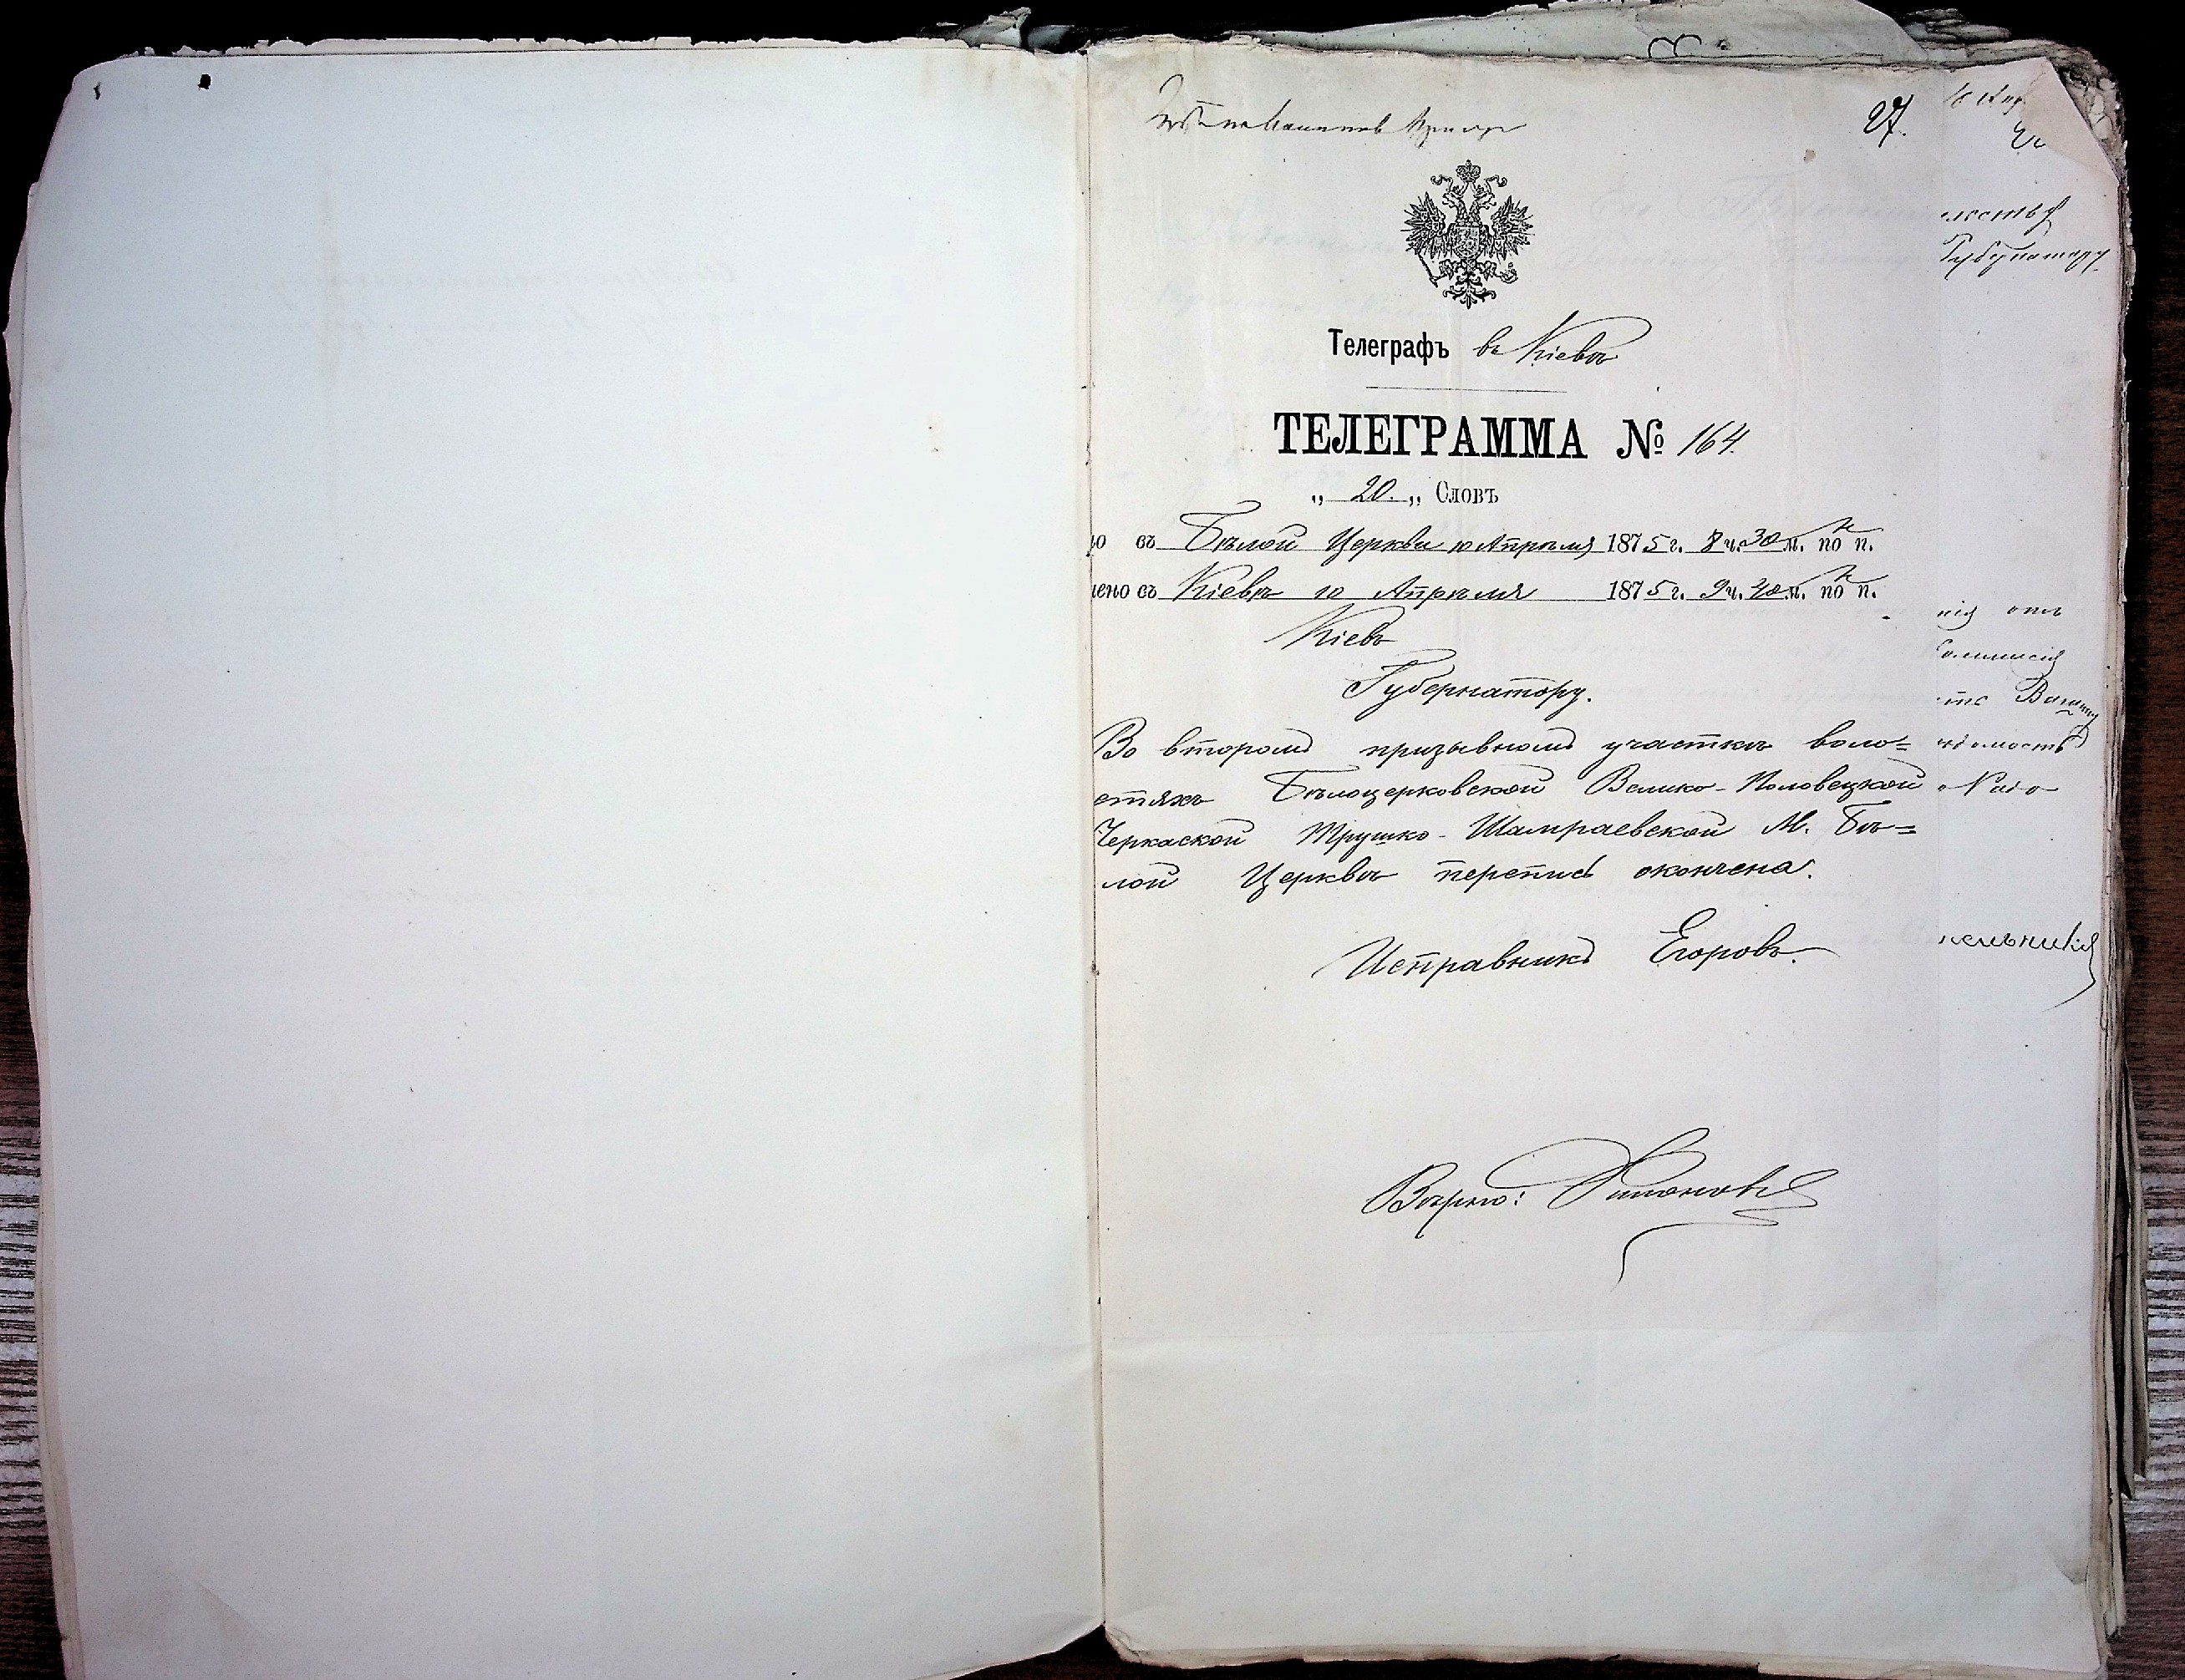 27.
Телеграфъ въ Кіевѣ
ТЕЛЕГРАММА № 164.
„ 20. „ Словъ
съ Бѣлой Церкви 10 Апрѣля 1875 г. 8 ч. 30 м. по п.
лено съ Кіевѣ 10 Апрѣля 1875 г. 9 ч. м. по п.
Кіевъ
Губернатору.
Во второмъ призывномъ участкѣ воло=
стяхъ Бѣлоцерковской Велико-Половецкой
Черкаской Трушко-Шамраевской М. Бѣ=
лой Церквѣ перепись окончена.
Исправникъ Егоровъ.
Вѣрно:
Губернатору
нія отъ